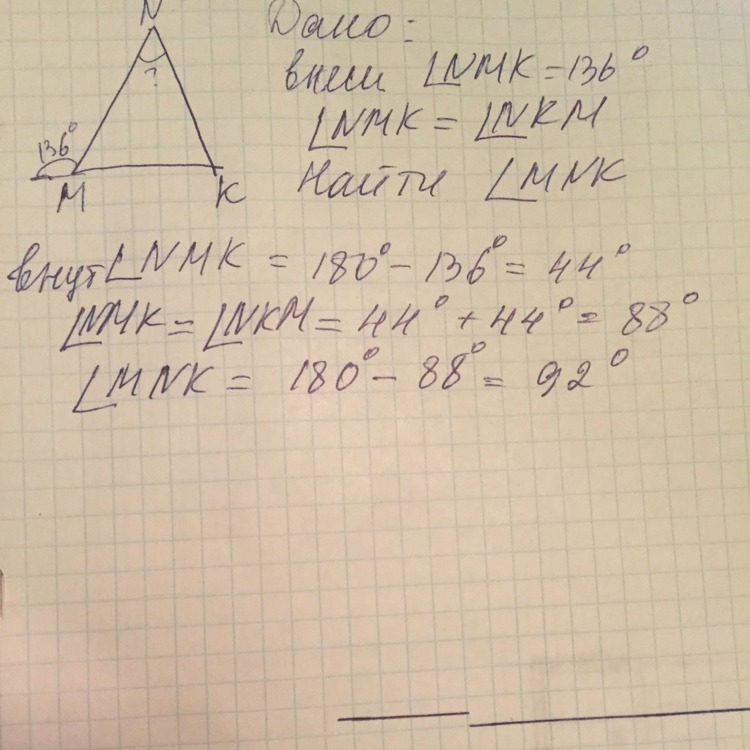 N
Дано:
внеш ∠NMK = 136°
∠NMK = ∠NKM
Найти ∠MNK
?
136°
M K
внут ∠NMK = 180° - 136° = 44°
∠NMK = ∠NKM = 44° + 44° = 88°
∠MNK = 180° - 88° = 92°